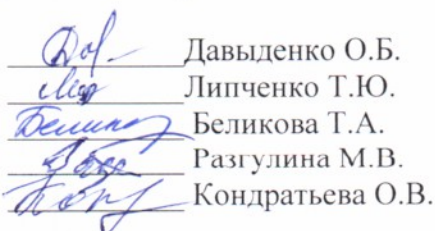 Давыденко О.Б.
Липченко Т.Ю.
Беликова Т.А.
Разгулина М.В.
Кондратьева О.В.